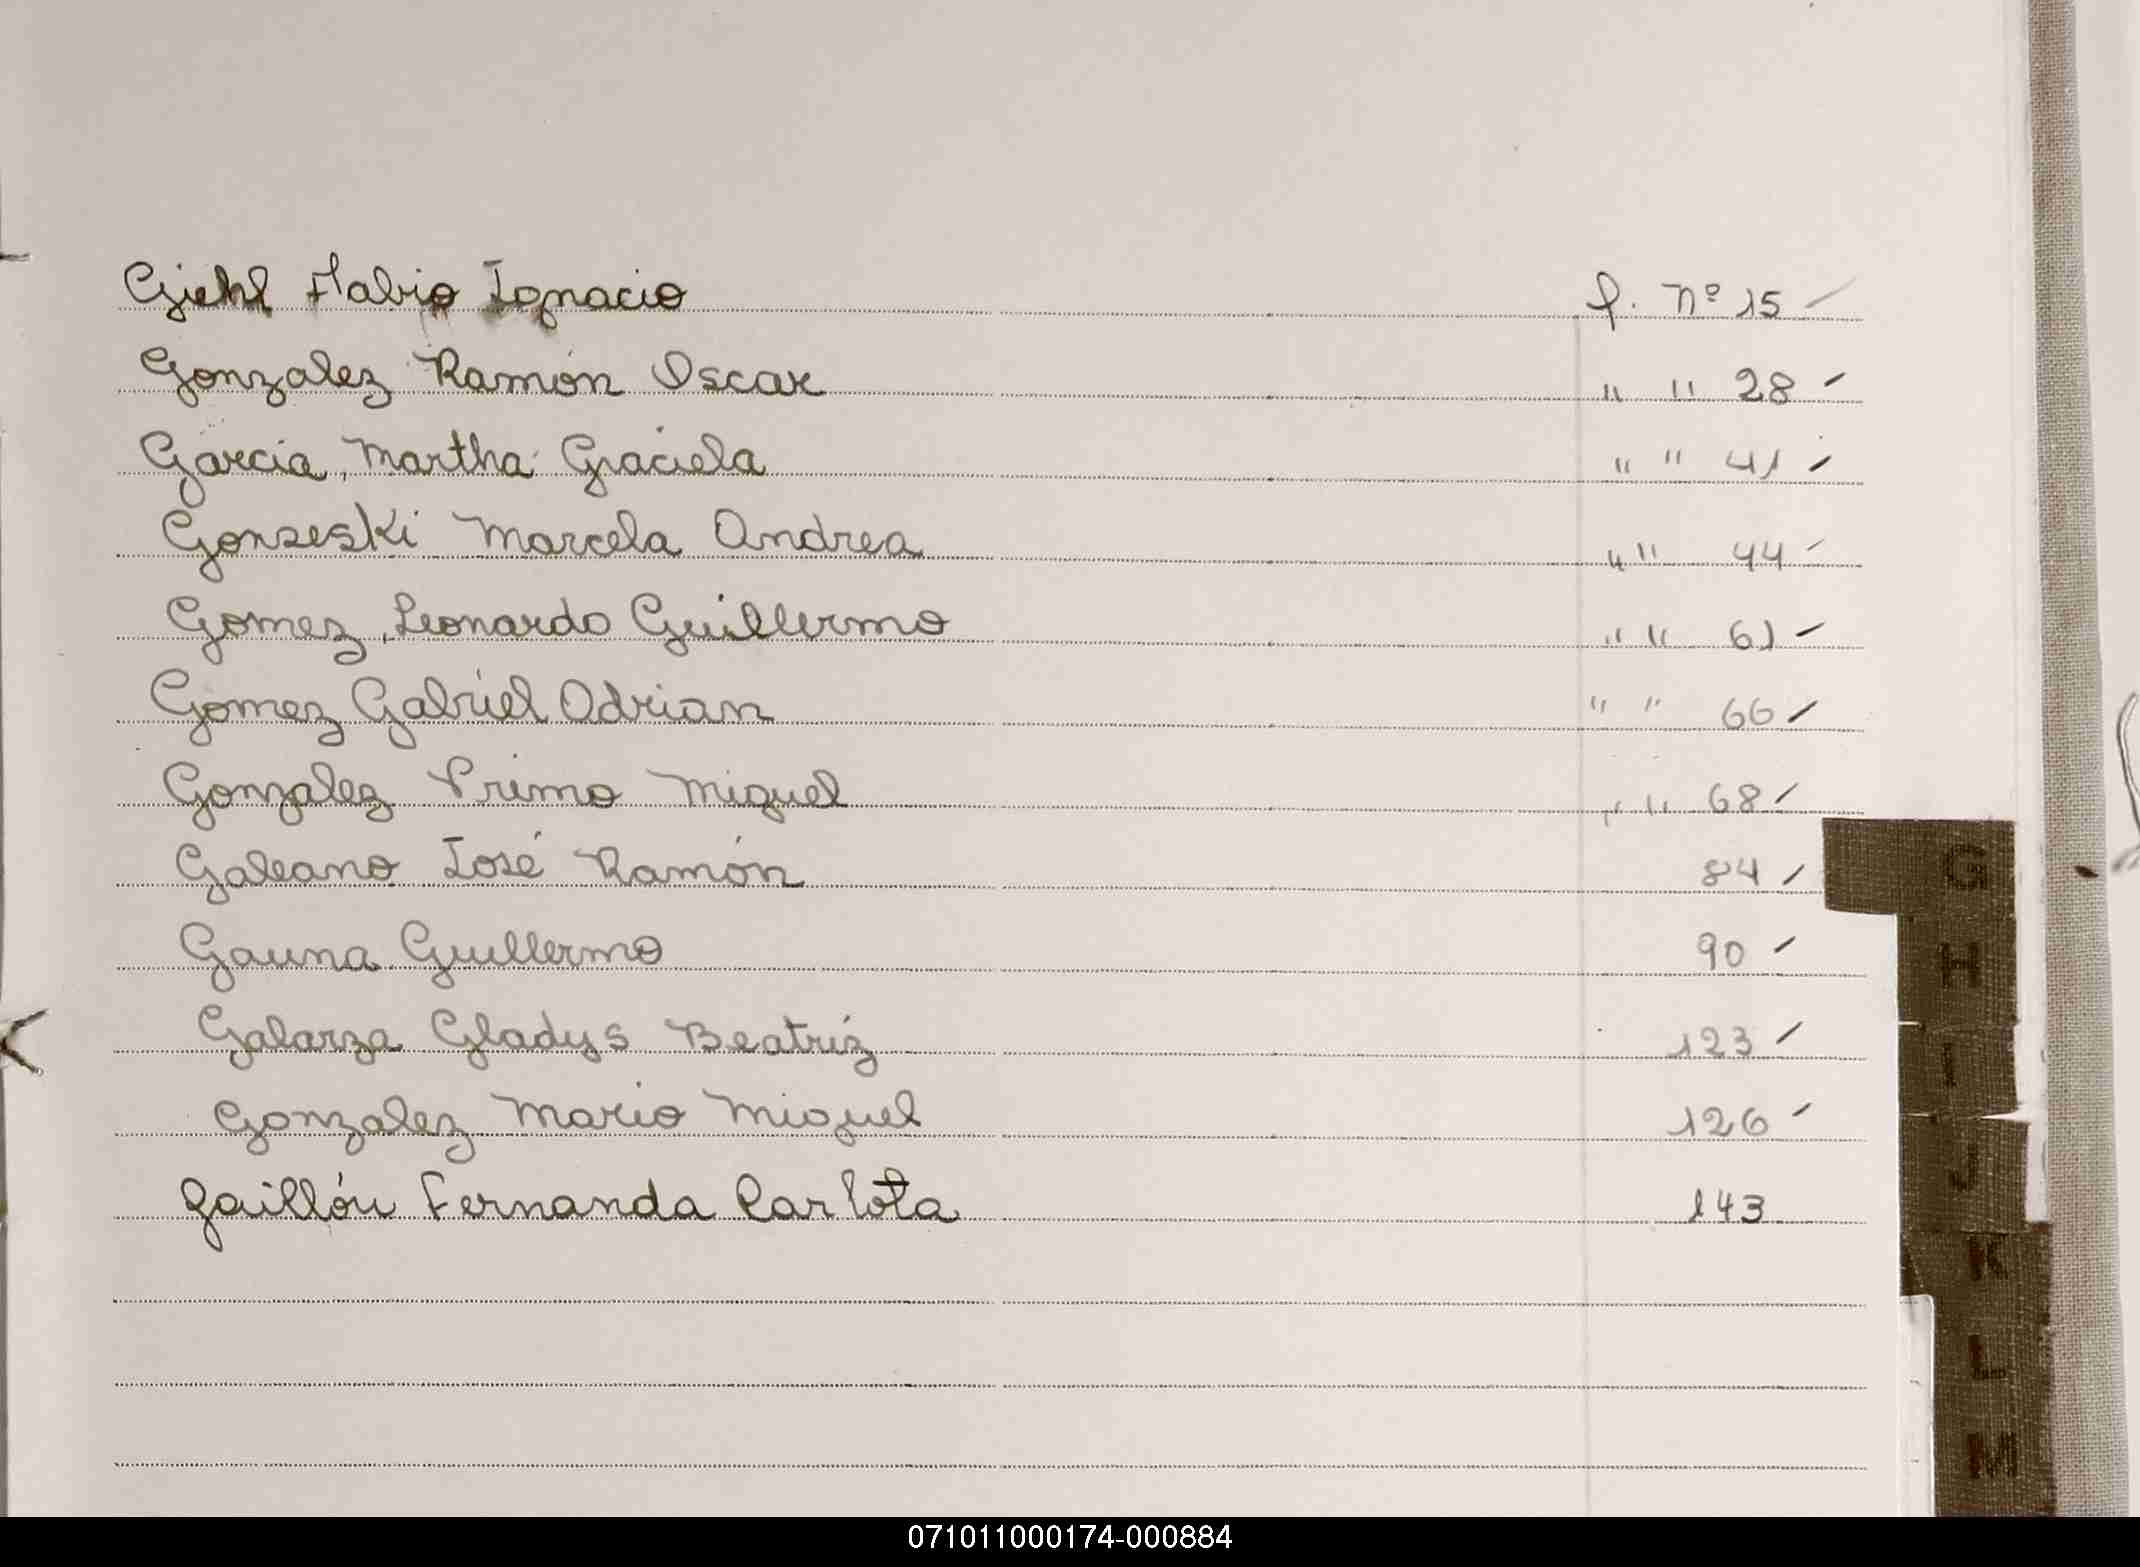 Giehl Fabio Ignacio f. Nº 15
Gonzalez Ramón Oscar " " 28
Garcia, Martha Graciela " " 41
Gonseski Marcela Andrea " " 44
Gomez, Leonardo Guillermo " " 61
Gomez Gabriel Adrian " " 66
Gonzalez Primo Miguel " " 68
Galeano José Ramón 84
Gauna Guillermo 90
Galarza Gladys Beatríz 123
Gonzalez Mario Miguel 126
Gaillóu Fernanda Carlota 143
G
H
I
J
K
L
M
071011000174-000884